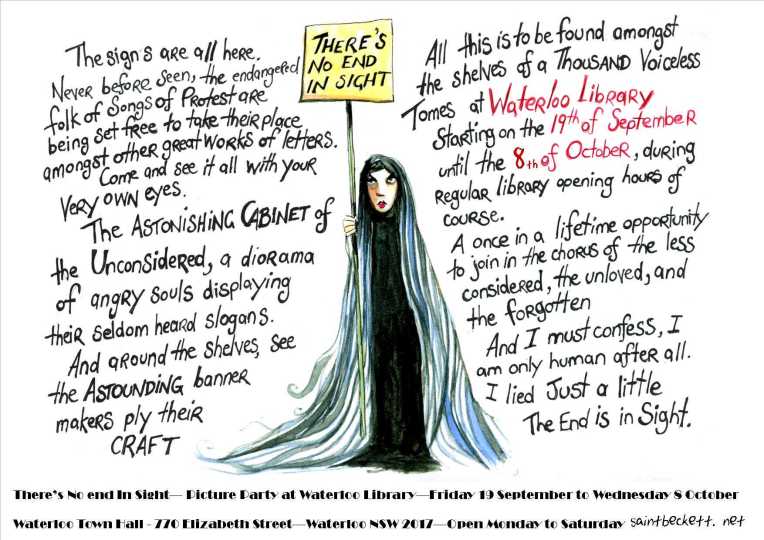 The sign's are all here.
Never before seen, the endangered
folk of Songs of Protest are
being set free to take their place
amongst other great works of letters.
Come and see it all with your
very own eyes.
The Astonishing Cabinet of
the Unconsidered, a diorama
of angry souls displaying
their seldom heard slogans.
And around the shelves, see
the Astounding banner
makers ply their
CRAFT
THERE'S
NO END
IN SIGHT
All this is to be found amongst
the shelves of a Thousand Voiceless
Tomes at Waterloo Library
Starting on the 19th of September
until the 8th of October, during
regular library opening hours of
course.
A once in a lifetime opportunity
to join in the chorus of the less
considered, the unloved, and
the forgotten
And I must confess, I
am only human after all.
I lied Just a little
The End is in Sight.
There's No end In Sight— Picture Party at Waterloo Library—Friday 19 September to Wednesday 8 October
Waterloo Town Hall - 770 Elizabeth Street—Waterloo NSW 2017—Open Monday to Saturday saintbeckett.net